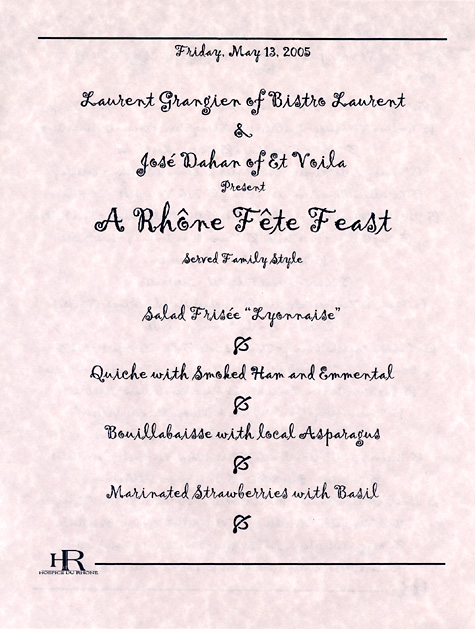 Friday, May 13, 2005
Laurent Grangien of Bistro Laurent
&
José Dahan of Et Voila
Present
A Rhône Fête Feast
Served Family Style
Salad Frisée “Lyonnaise”
Quiche with Smoked Ham and Emmental
Bouillabaisse with local Asparagus
Marinated Strawberries with Basil
HR
HOSPICE DU RHÔNE